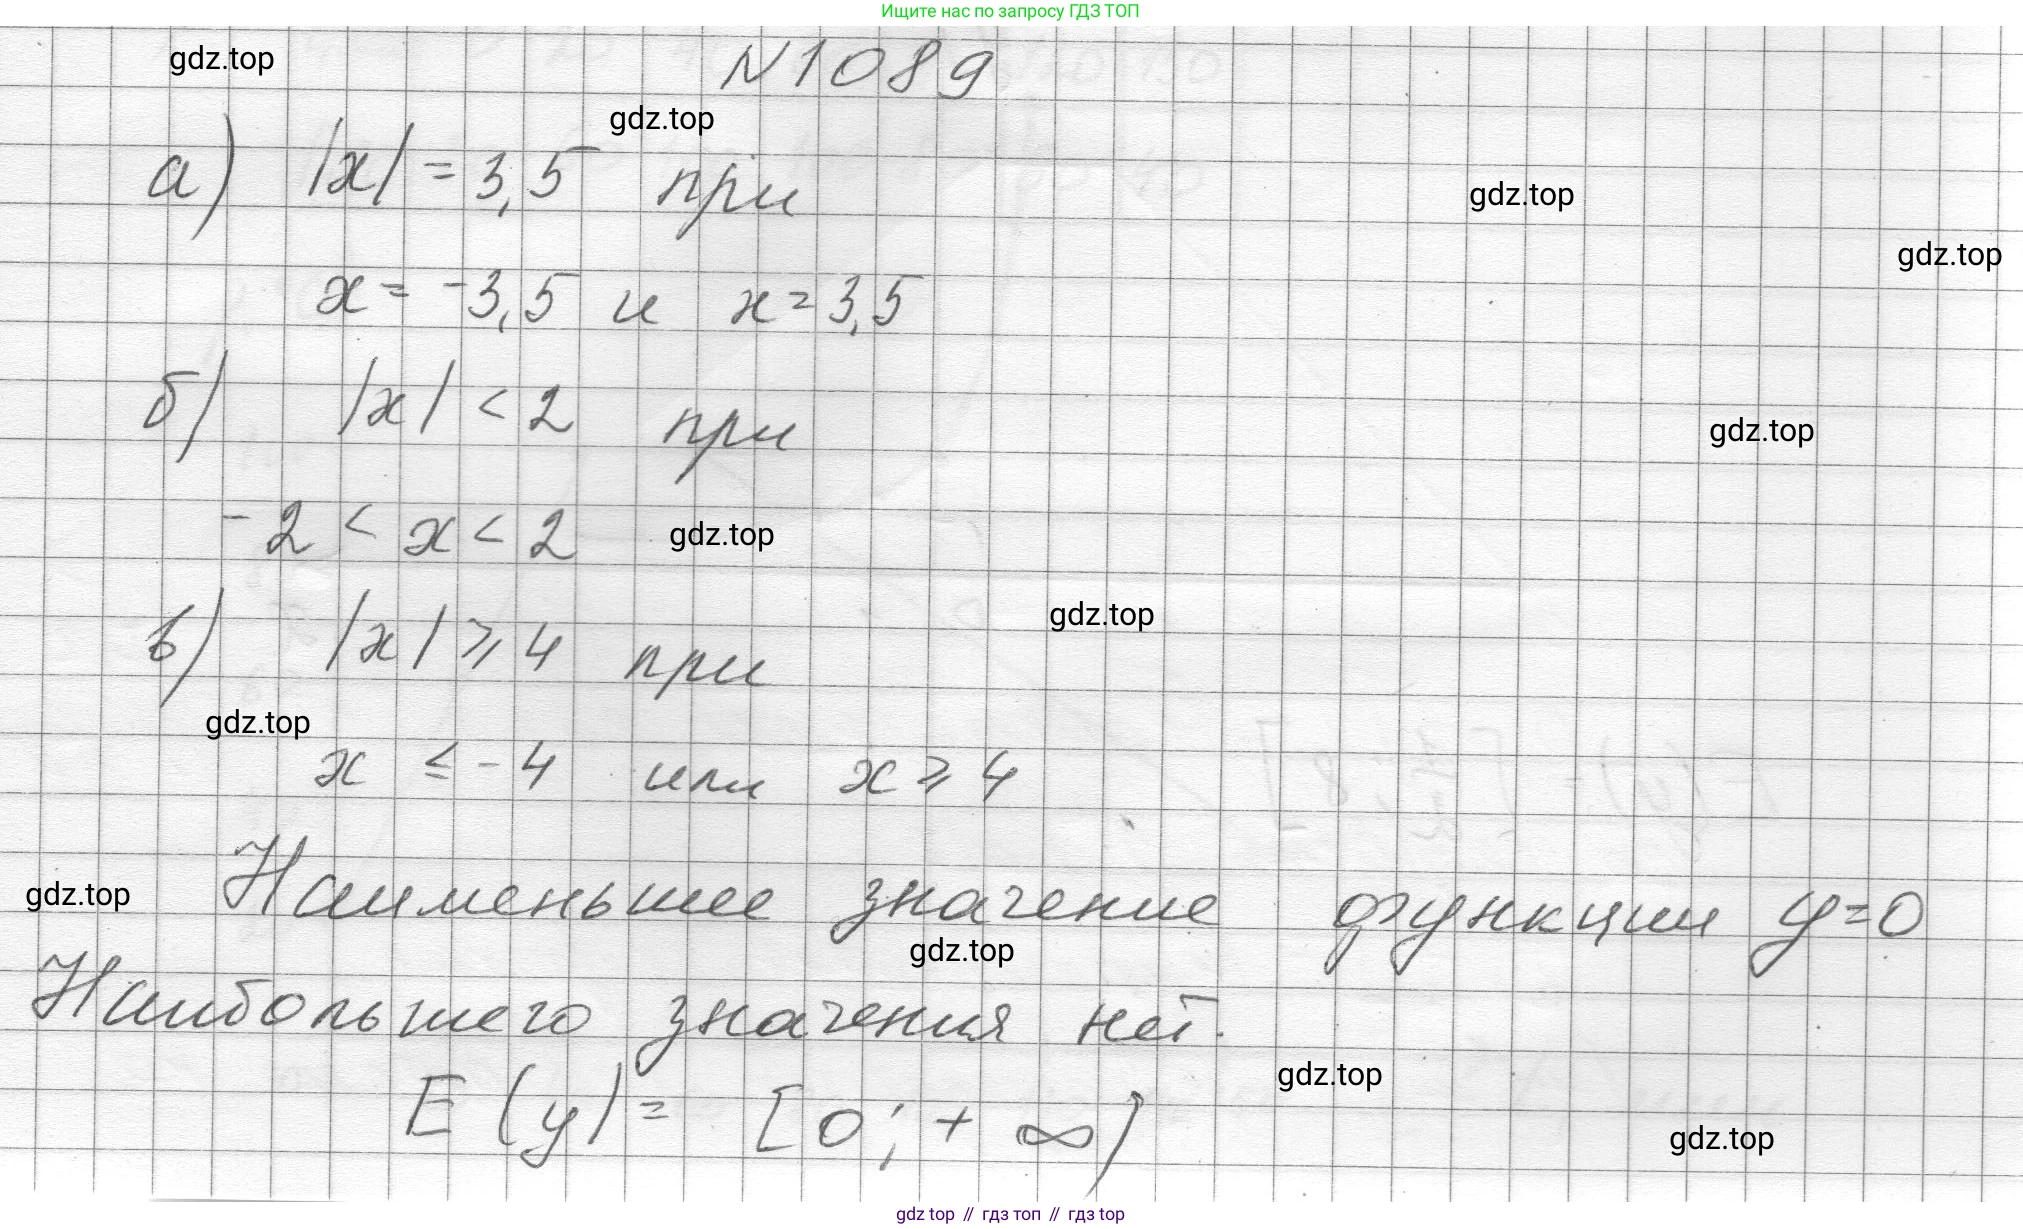 Ищите нас по запросу ГДЗ ТОП
gdz.top
N1089
gdz.top
а) |x| = 3,5 при
gdz.top
gdz.top
x = -3,5 и x = 3,5
б) |x| < 2 при
gdz.top
-2 < x < 2
gdz.top
в) |x| ⩾ 4 при
gdz.top
gdz.top
x ≤ -4 или x ⩾ 4
gdz.top
Наименьшее значение функции y=0
gdz.top
Наибольшего значения нет.
gdz.top
E(y) = [0; +∞)
gdz.top
gdz top // гдз топ // гдз top